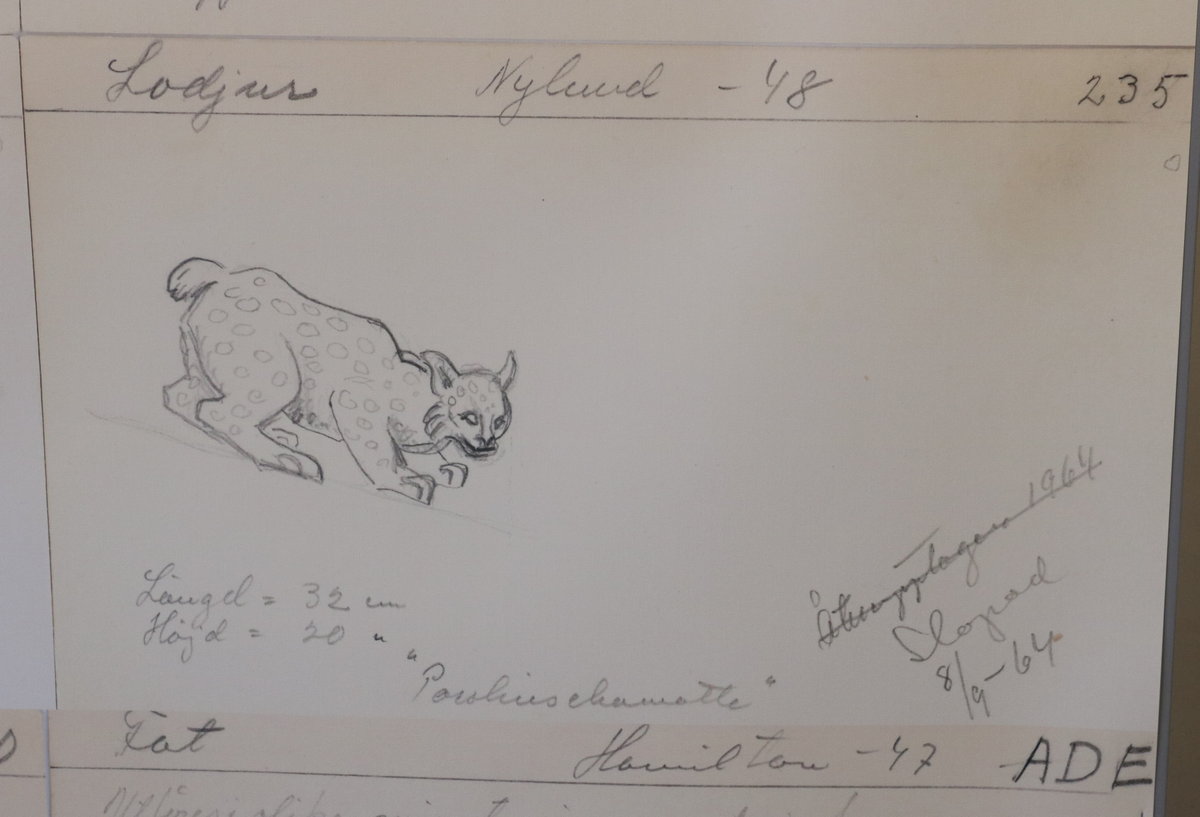 Lodjur Nylund -48 235
Längd = 32 cm
Höjd = 20 "
"Porslinschamotte"
Återupptagen 1964
Slopad
8/9-64
Fat Hamilton -47 ADE